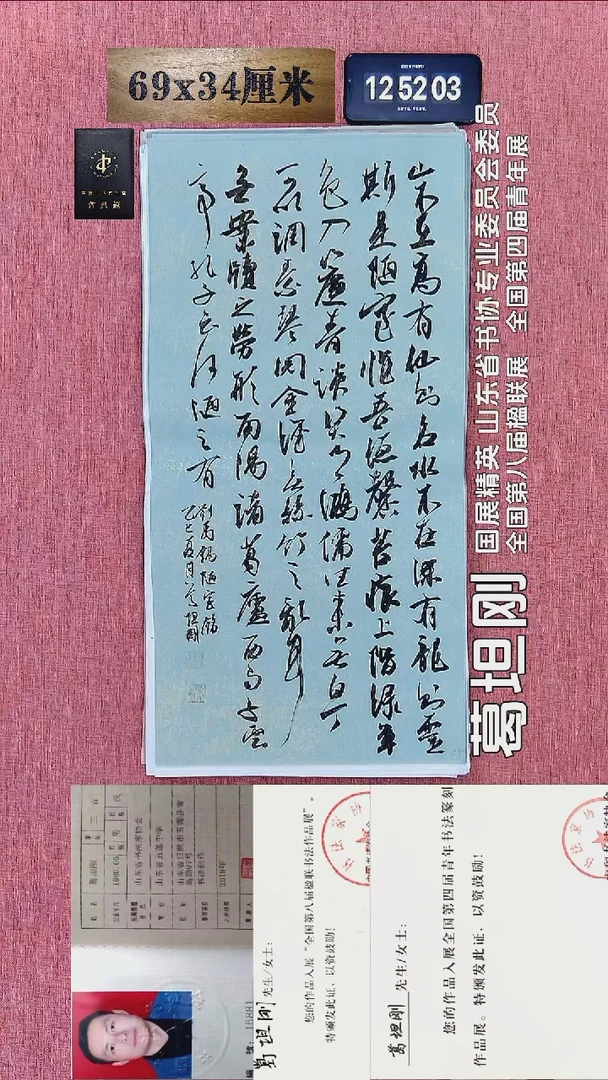 69x34厘米
12 52 03
山不在高有仙则名水不在深有龙则灵
斯是陋室惟吾德馨苔痕上阶绿草
色入帘青谈笑有鸿儒往来无白丁
可以调素琴阅金经无丝竹之乱耳
无案牍之劳形南阳诸葛庐西蜀子云
亭孔子云何陋之有
刘禹锡陋室铭
乙巳夏月葛坦刚
葛坦刚
国展精英 山东省书协专业委员会委员
全国第八届楹联展 全国第四届青年展
山东省书法家协会
2018年
16881
葛坦刚 先生/女士:
您的作品入展“全国第八届楹联书法作品展”。
特颁发此证、以资鼓励!
葛坦刚 先生/女士:
您的作品入展全国第四届青年书法篆刻
作品展。特颁发此证、以资鼓励!